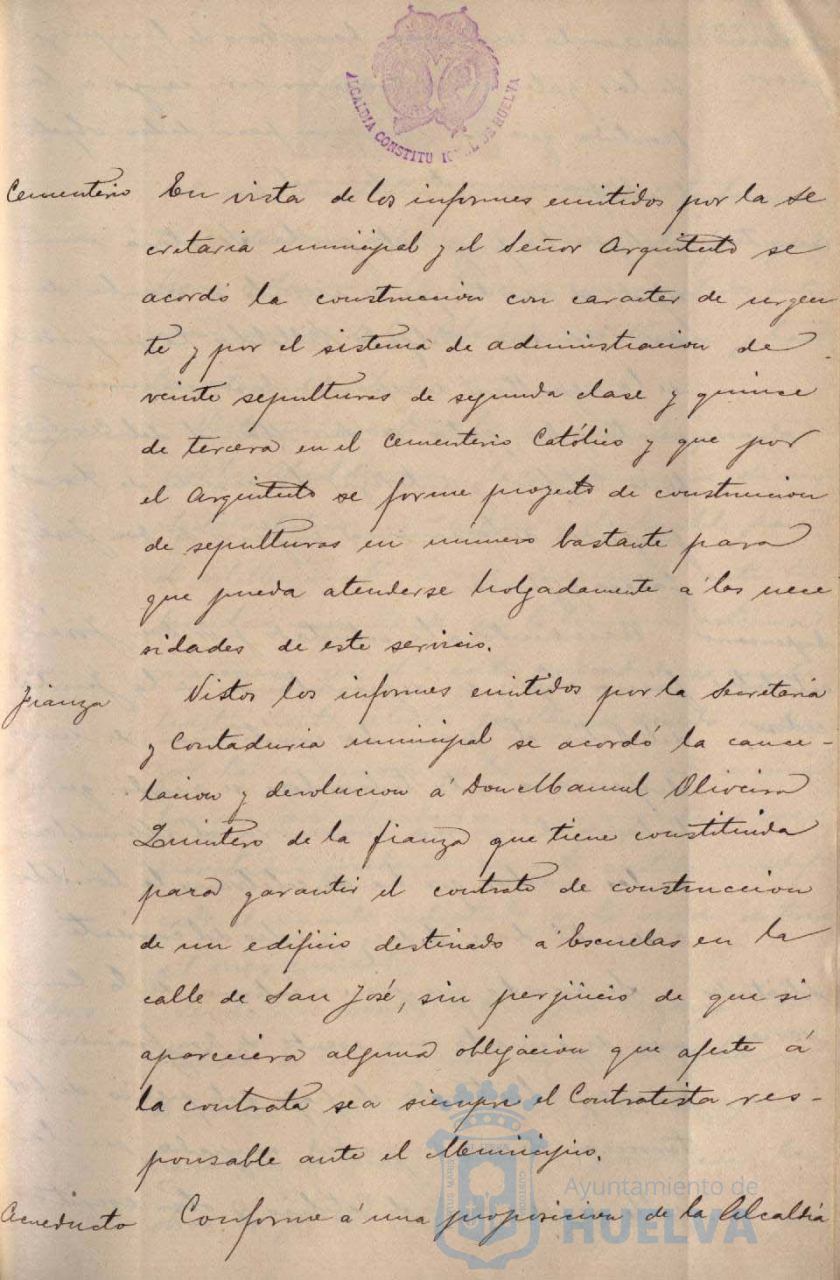 ALCALDIA CONSTITU NAL DE HUELVA
Cementerio En vista de los informes emitidos por la se
cretaria municipal y el Señor Arquitecto se
acordó la construccion con caracter de urgen
te y por el sistema de administracion de
veinte sepulturas de segunda clase y quince
de tercera en el Cementerio Católico y que por
el Arquitecto se forme proyecto de construccion
de sepulturas en numero bastante para
que pueda atenderse holgadamente á las nece
sidades de este servicio.
Fianza Vistos los informes emitidos por la Secretaria
y Contaduria municipal se acordó la cance-
lacion y devolucion á Don Manuel Oliveira
Quintero de la fianza que tiene constituida
para garantir el contrato de construccion
de un edificio destinado á Escuelas en la
calle de San José, sin perjuicio de que si
apareciera alguna obligacion que afecte á
la contrata sea siempre el Contratista res-
ponsable ante el Municipio.
Acueducto Conforme á una proposicion de la Alcaldia
Ayuntamiento de
HUELVA